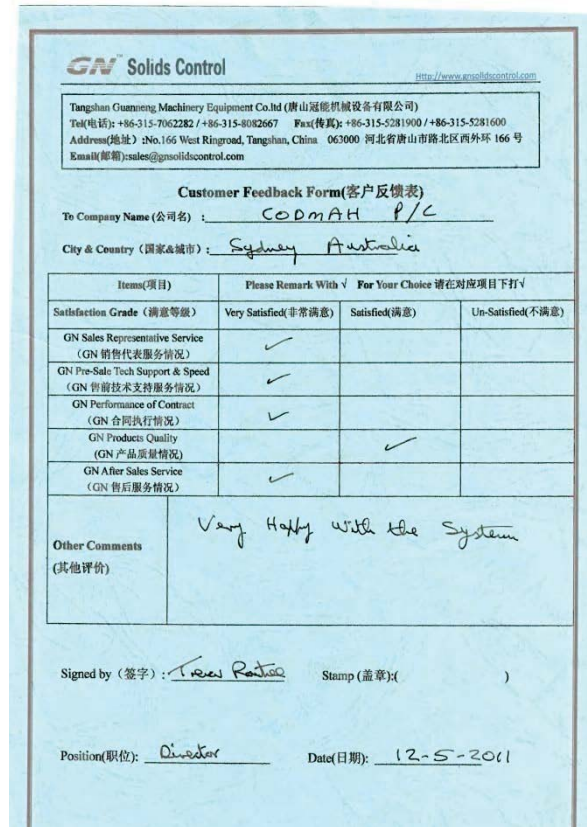 GN™ Solids Control
Http://www.gnsolidscontrol.com
Tangshan Guanneng Machinery Equipment Co.ltd (唐山冠能机械设备有限公司)
Tel(电话): +86-315-7062282 / +86-315-8082667 Fax(传真): +86-315-5281900 / +86-315-5281600
Address(地址) :No.166 West Ringroad, Tangshan, China 063000 河北省唐山市路北区西外环 166 号
Email(邮箱):sales@gnsolidscontrol.com
Customer Feedback Form(客户反馈表)
To Company Name (公司名) : CODMAH P/C
City & Country (国家&城市) : Sydney Australia
Items(项目) Please Remark With √ For Your Choice 请在对应项目下打√
Satisfaction Grade (满意等级) Very Satisfied(非常满意) Satisfied(满意) Un-Satisfied(不满意)
GN Sales Representative Service ✓
(GN 销售代表服务情况)
GN Pre-Sale Tech Support & Speed ✓
(GN 售前技术支持服务情况)
GN Performance of Contract ✓
(GN 合同执行情况)
GN Products Quality ✓
(GN 产品质量情况)
GN After Sales Service ✓
(GN 售后服务情况)
Very Happy with the System
Other Comments
(其他评价)
Signed by (签字) : Stamp (盖章):( )
Position(职位): Director Date(日期): 12-5-2011